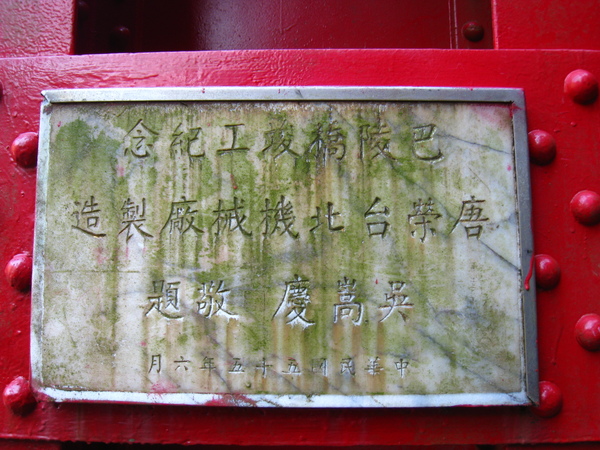 巴陵橋竣工紀念
唐榮台北機械廠製造
吳嵩慶 敬題
中華民國五十五年六月